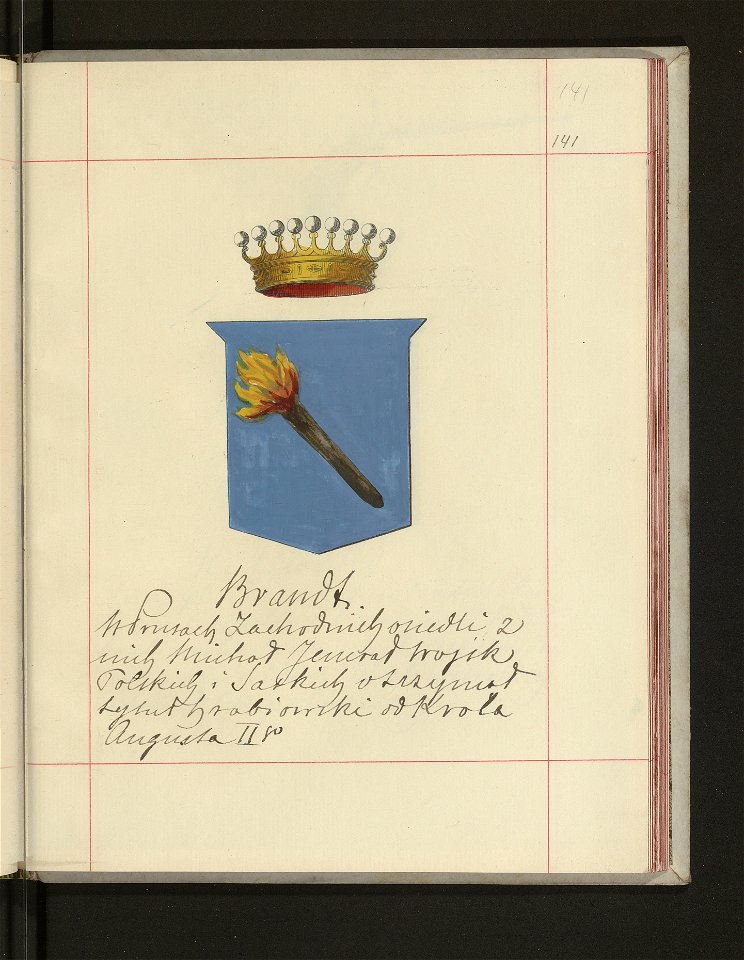 141
141
Brandt.
W Prusach Zachodnich osiedli, z
nich Michał Jenerał wojsk
Polskich i Saskich otrzymał
tytuł hrabiowski od Króla
Augusta II go